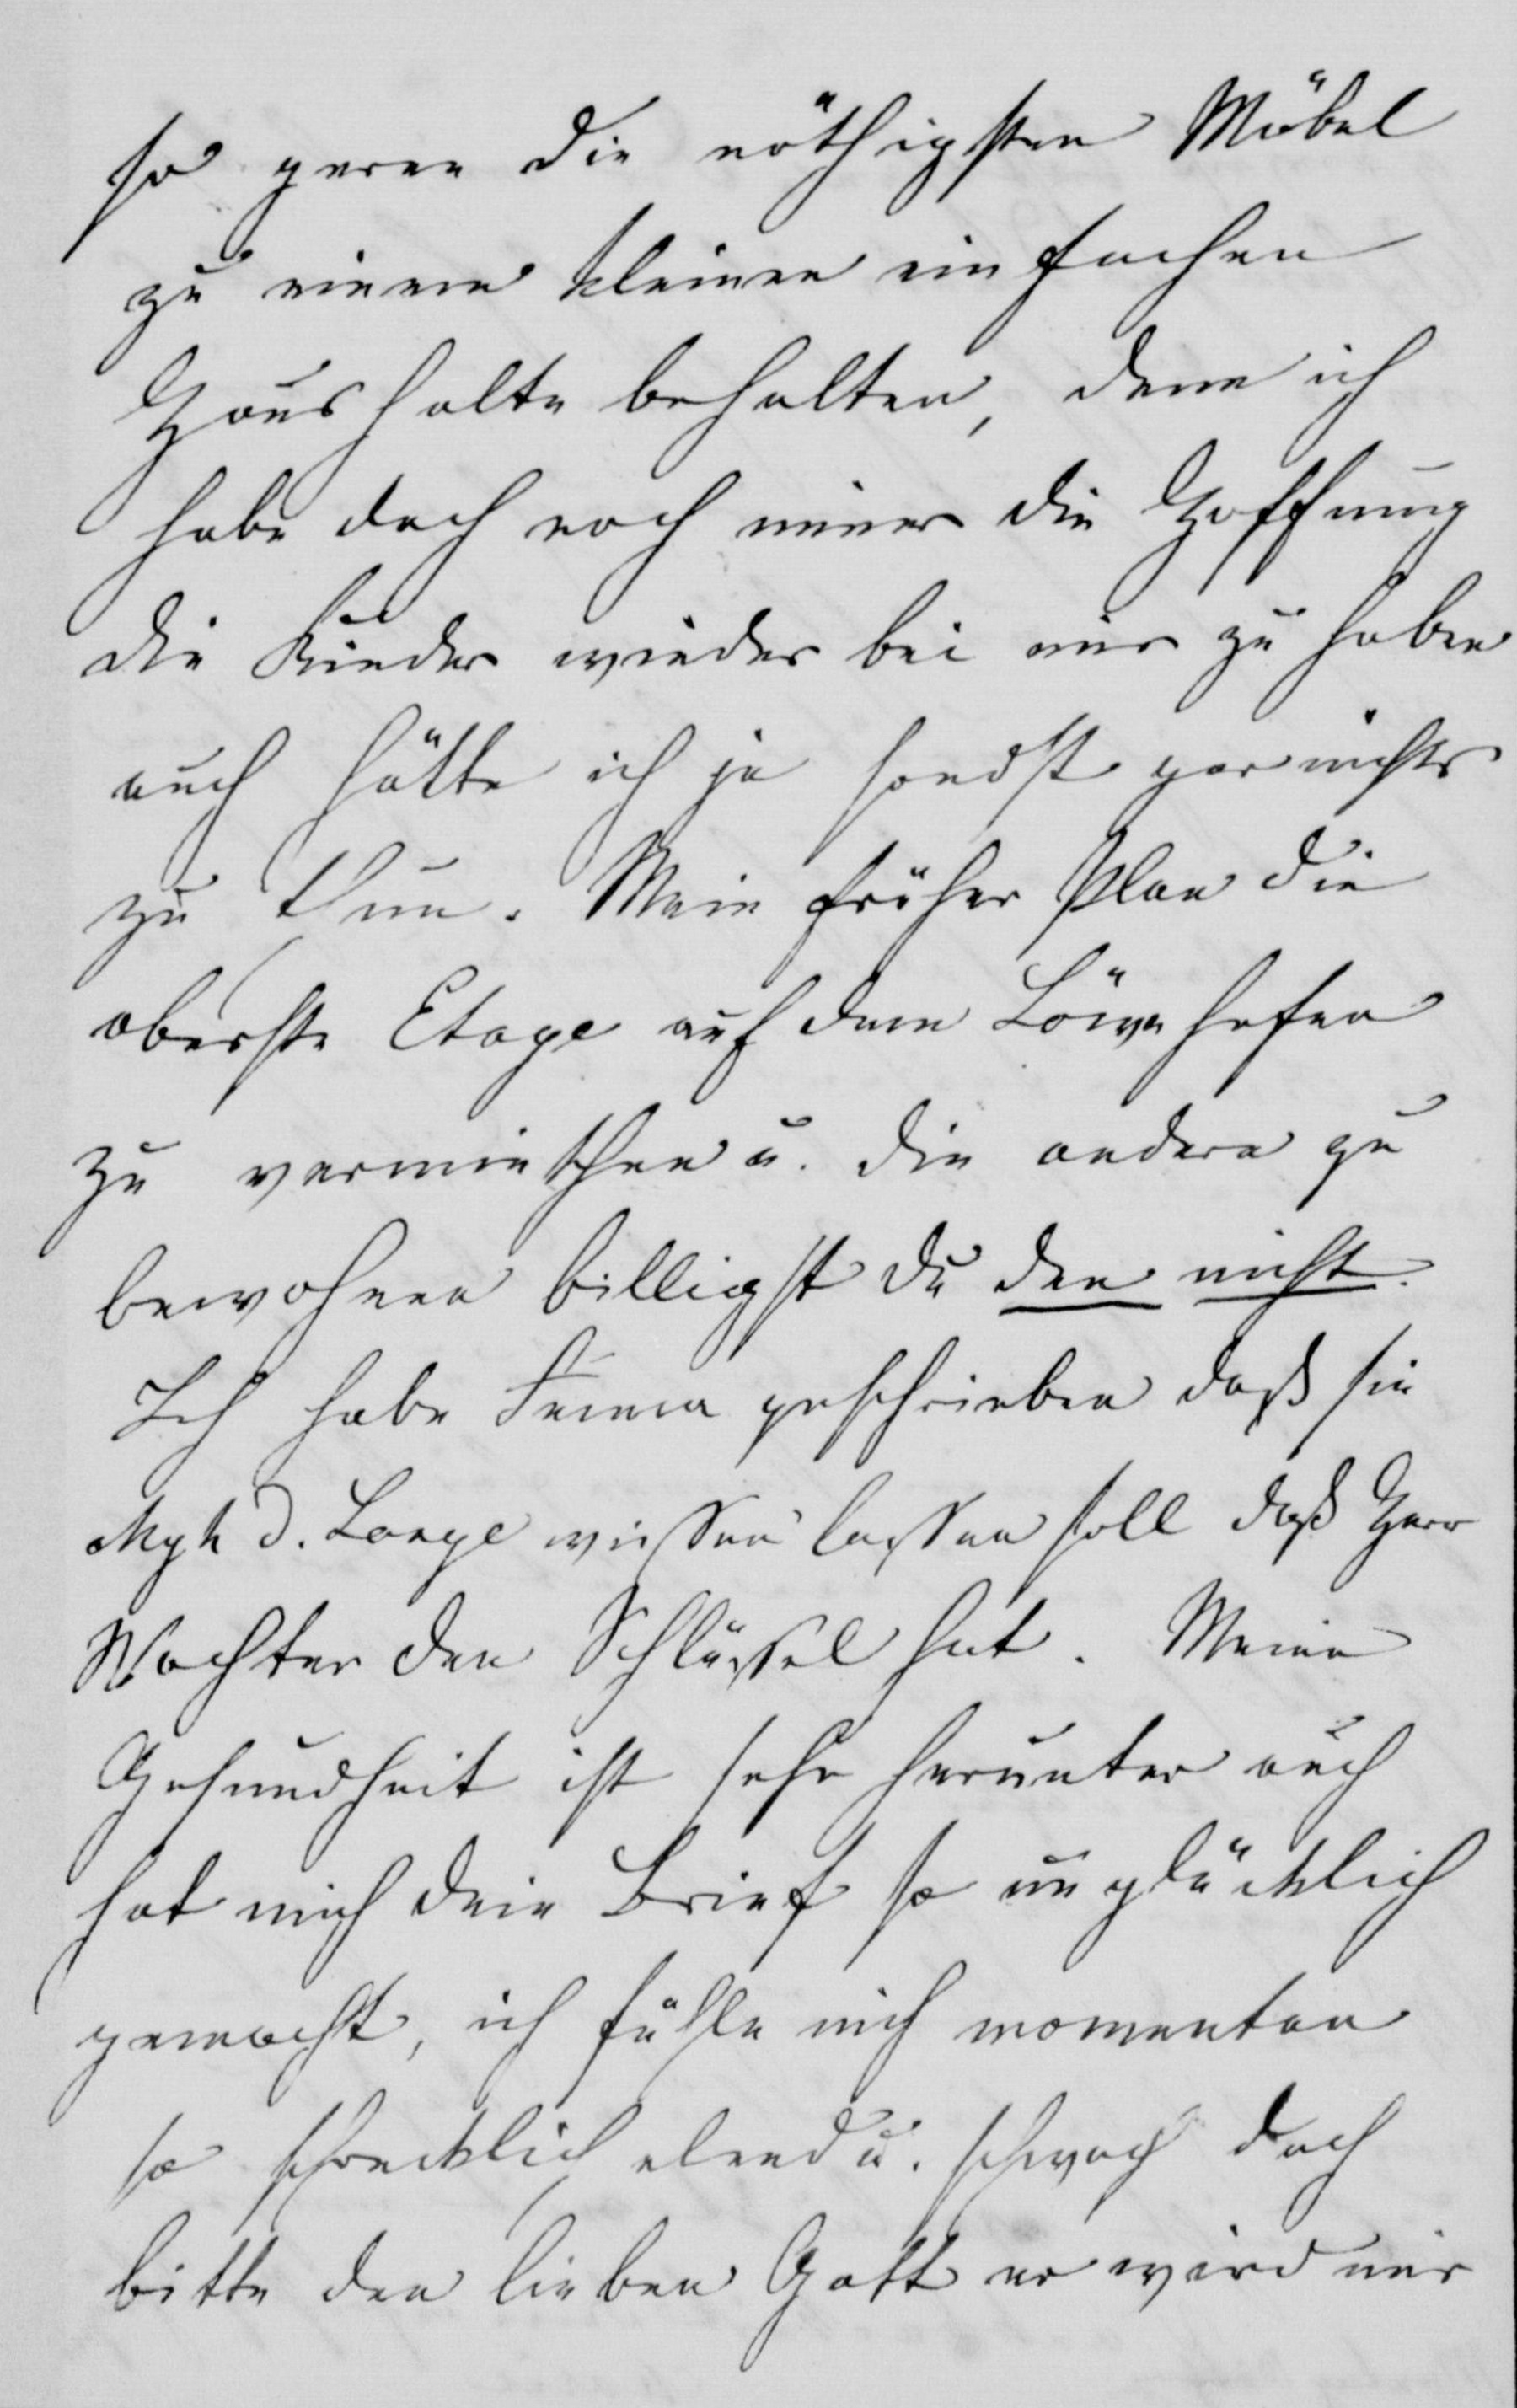 so gerne die nöthigsten Möbel
zu einem kleinen einfachen
Haushalte behalten, denn ich
habe doch noch immer die Hoffnung
die Kinder wieder bei mir zu haben
auch hätte ich ja sondst gar nichts
zu thun. Mein früher Plan die
oberste Etage auf dem Löwehofen
zu vermiethen u. die andere zu
bewohnen billigst du den nicht.
Ich habe Emma geschrieben daß sie
d. Lange wissen lassen soll daß Herr
Wachter den Schlüssel hat. Meine
Gesundheit ist sehr herunter auch
hat mich dein Brief so unglücklich
gemacht, ich fühle mich momentan
so schrecklich elend u. schwach doch
bitte den lieben Gott er wird mir